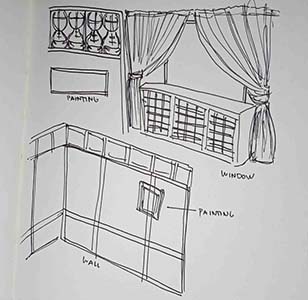 PAINTING
WINDOW
PAINTING
WALL